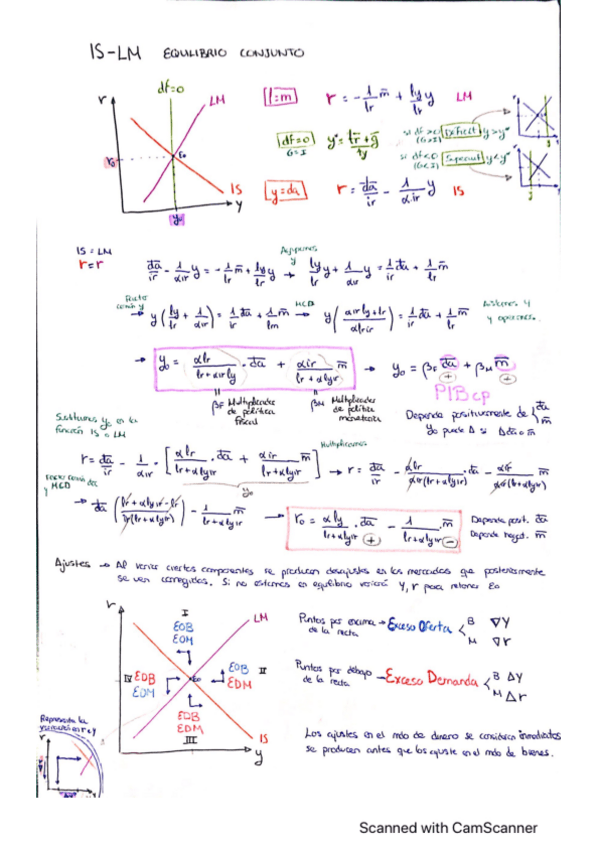 IS-LM EQUILIBRIO CONJUNTO
df=0
r
LM
r₀
E₀
IS
y₀
y
l=m r = -1/lr m̄ + ly/lr y LM
df=0 y* = (t̄r+ḡ)/ty
G=I
si df>0 Déficit y>y*
(G>I)
si df<0 Superavit y<y*
(G<I)
y=da r = d̄a/ir - 1/α.ir y IS
IS = LM
r=r
d̄a/ir - 1/αir y = -1/lr m̄ + ly/lr y → ly/lr y + 1/αir y = 1/ir d̄a + 1/lr m̄
Agrupamos y
Factor común y
→ y(ly/lr + 1/αir) = 1/ir d̄a + 1/lm m̄ → y((αirly+lr)/αlrir) = 1/ir d̄a + 1/lr m̄
MCD
y operamos.
→ y₀ = αlr/(lr+αirly) · d̄a + αir/(lr+αlyir) m̄ → y₀ = βF d̄a + βM m̄
(+) (+)
PIBcp
βF Multiplicador de política fiscal
βM Multiplicador de política monetaria
Depende positivamente de { d̄a m̄
y₀ puede Δ si Δd̄a o m̄
Sustituimos y₀ en la función IS o LM
r = d̄a/ir - 1/αir · [αlr/(lr+αlyir) · d̄a + αir/(lr+αlyir) m̄] → r = d̄a/ir - αlr/αir(lr+αlyir) · d̄a - αir/αir(lr+αlyir) m̄
Multiplicamos
y₀
Factor común da y MCD
→ d̄a ((lr+αlyir-lr)/ir(lr+αlyir)) - 1/(lr+αlyir) m̄ → r₀ = αly/(lr+αlyir) · d̄a - 1/(lr+αlyir) · m̄
(+) (-)
Depende posit. d̄a
Depende negat. m̄
Ajustes → Al variar ciertos componentes se producen desajustes en los mercados que posteriormente
se ven corregidos. Si no estamos en equilibrio variará Y, r para retornar E₀
r
I
EOB
EOM
LM
IV EDB
EOM
E₀
EOB II
EDM
EDB
EDM
III
IS
y
Puntos por encima → Exceso Oferta < B ∇Y
de la recta M ∇r
Puntos por debajo → Exceso Demanda < B ΔY
de la recta M Δr
Representa la variación en r e y
r
Los ajustes en el mdo de dinero se consideran inmediatos
se producen antes que los ajuste en el mdo de bienes.
Scanned with CamScanner